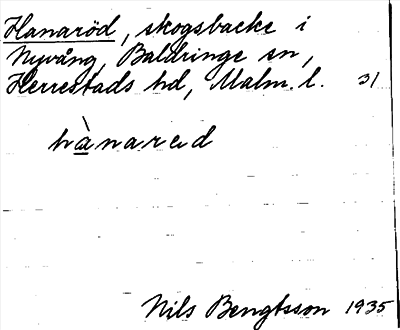 Hanaröd, skogsbacke i
Nyvång, Baldringe sn,
Herrestads hd, Malm. l. 31
hànarəd
Nils Bengtsson 1935